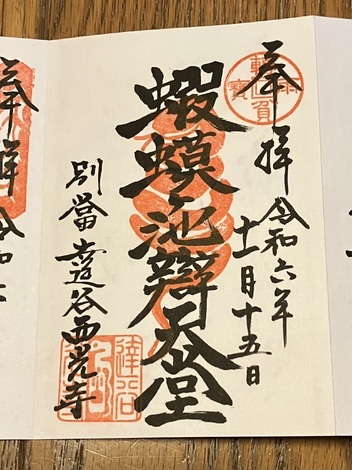 奉拝 令和六年
十一月十五日
蝦蟆池辯天堂
別當達谷西光寺
達谷
奉拝 令和